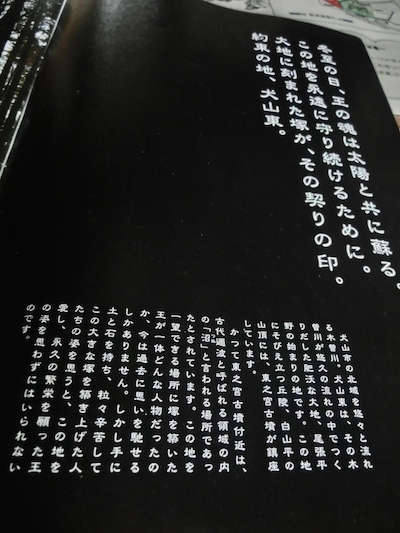 冬至の日、王の魂は太陽と共に蘇る。
この地を永遠に守り続けるために。
大地に刻まれた塚が、その契りの印。
約束の地、犬山東。
犬山市の北域を悠々と流れ
る木曽川。犬山東は、その木
曽川が悠久の流れの中でつく
りだした肥沃な大地、尾張平
野の始まりの地です。この地
にそびえ立つ丘陵、白山平の
山頂には、東之宮古墳が鎮座
しています。
かつて東之宮古墳付近は、
古代邇波と呼ばれる領域の内
の「沼」と言われる場所であっ
たとされています。この地を
一望できる場所に塚を築いた
王が一体どんな人物だったの
か、今は過去に思いを馳せる
しかありません。しかし手に
土と石を持ち、粒々辛苦して
この大きな塚を築き上げた人
たちの姿を思うと、この地を
愛し、永久の繁栄を願った王
の姿を思わずにはいられない
のです。